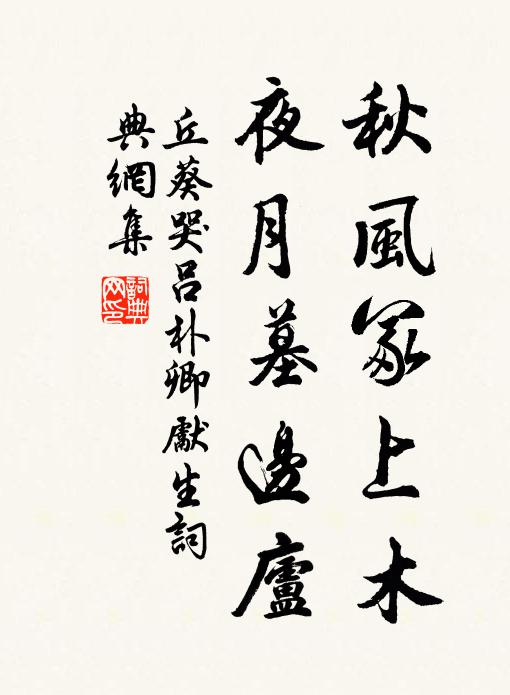 秋風冢上木
夜月墓邊廬
丘葵哭呂朴卿獻生詞
典網集
詞典
网印